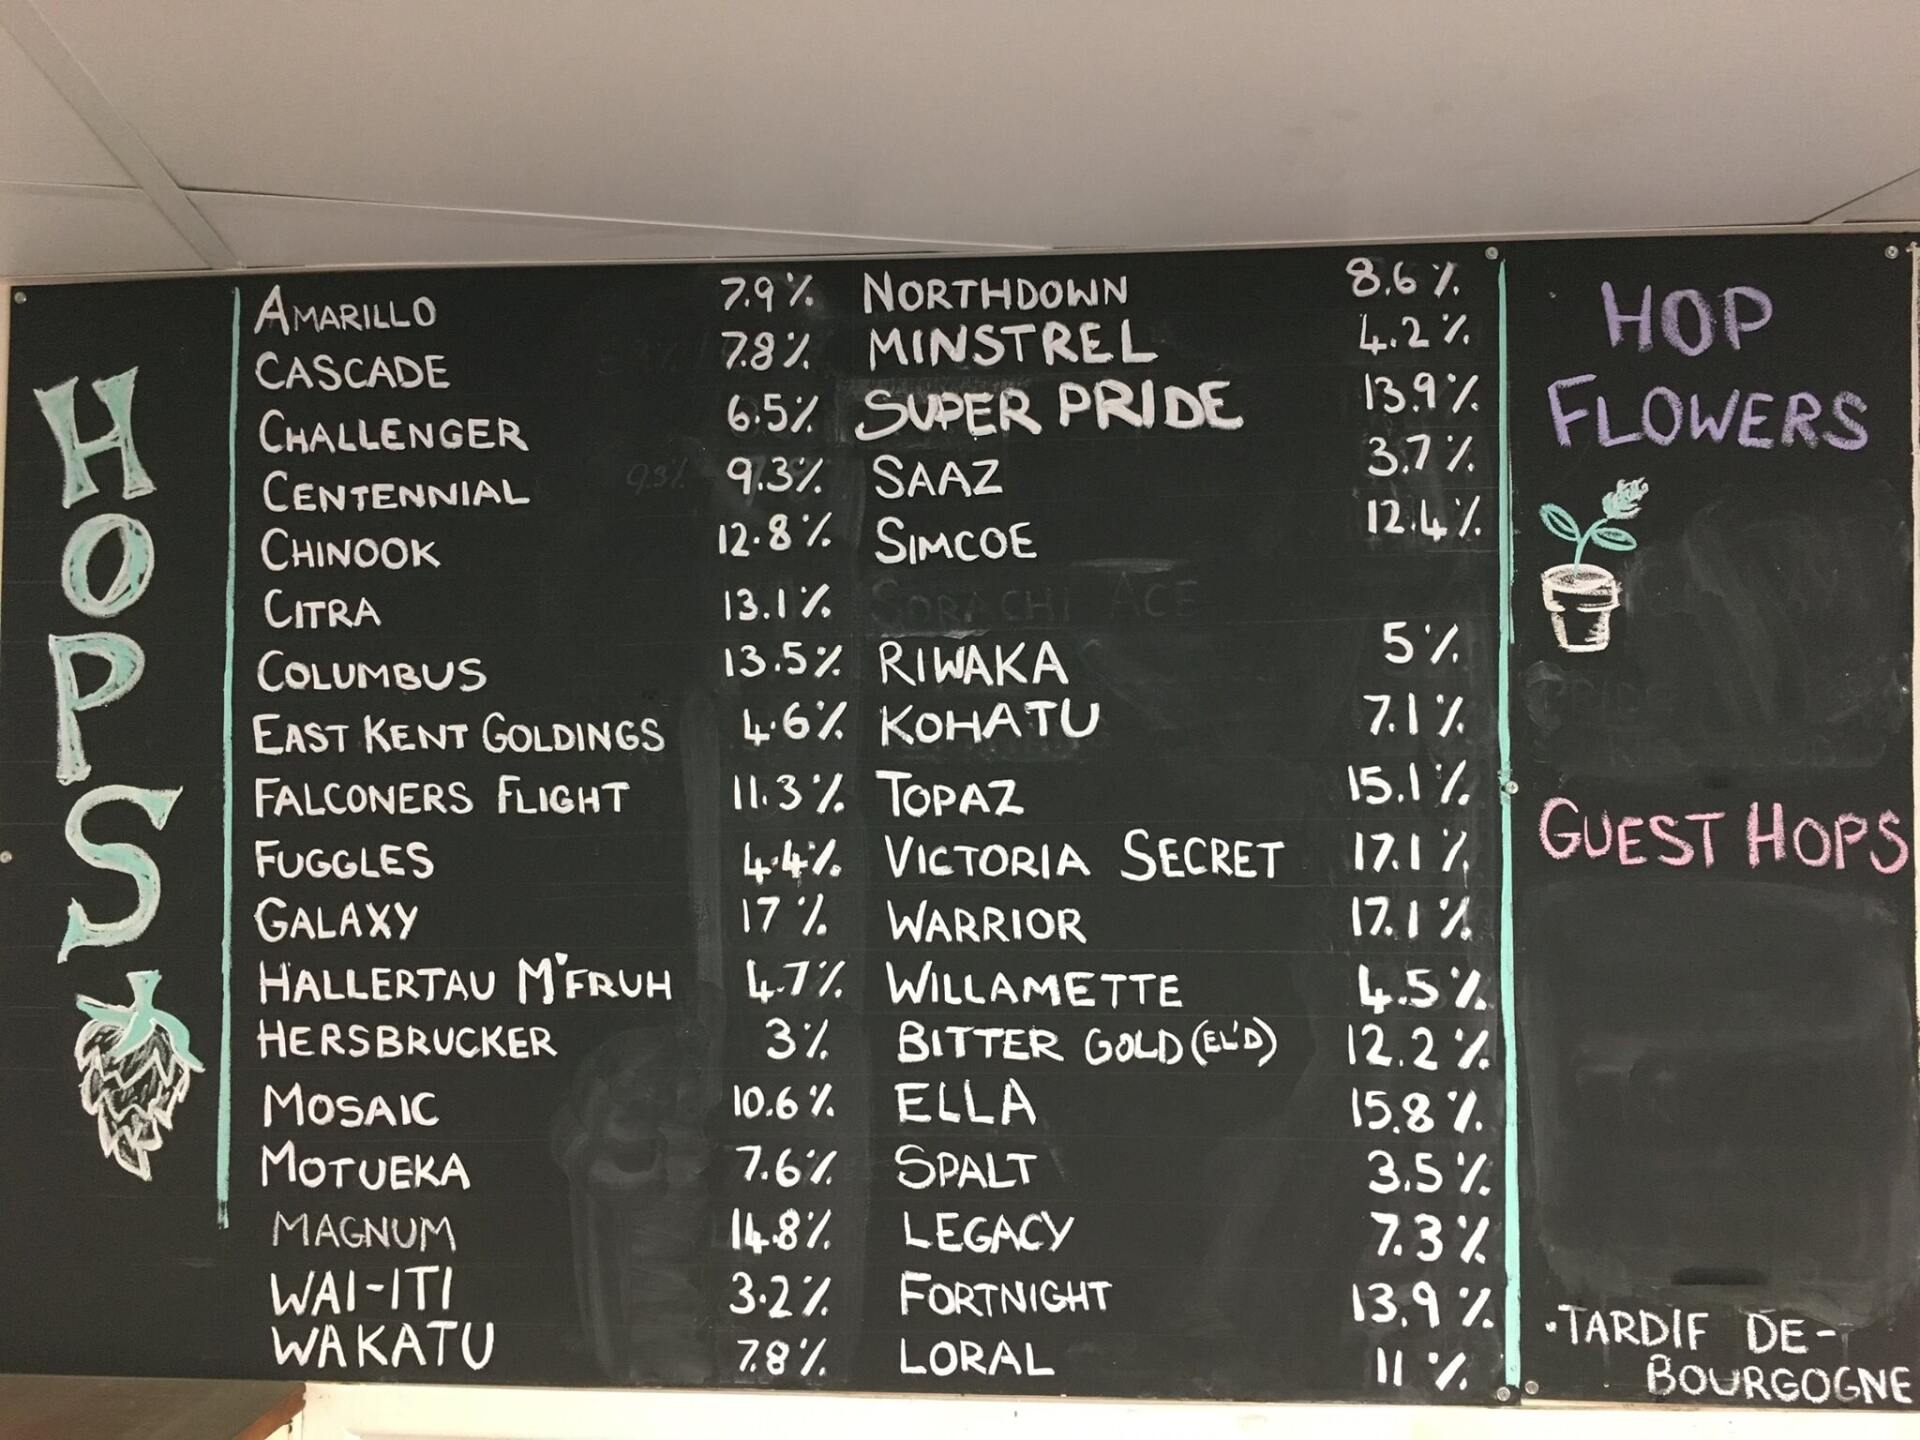 HOPS
AMARILLO 7.9%
CASCADE 7.8%
CHALLENGER 6.5%
CENTENNIAL 9.3% 9.3%
CHINOOK 12.8%
CITRA 13.1%
COLUMBUS 13.5%
EAST KENT GOLDINGS 4.6%
FALCONERS FLIGHT 11.3%
FUGGLES 4.4%
GALAXY 17%
HALLERTAU M'FRUH 4.7%
HERSBRUCKER 3%
MOSAIC 10.6%
MOTUEKA 7.6%
MAGNUM 14.8%
WAI-ITI 3.2%
WAKATU 7.8%
NORTHDOWN 8.6%
MINSTREL 4.2%
SUPER PRIDE 13.9%
SAAZ 3.7%
SIMCOE 12.4%
SORACHI ACE
RIWAKA 5%
KOHATU 7.1%
TOPAZ 15.1%
VICTORIA SECRET 17.1%
WARRIOR 17.1%
WILLAMETTE 4.5%
BITTER GOLD (EL'D) 12.2%
ELLA 15.8%
SPALT 3.5%
LEGACY 7.3%
FORTNIGHT 13.9%
LORAL 11%
HOP
FLOWERS
GUEST HOPS
·TARDIF DE-
BOURGOGNE